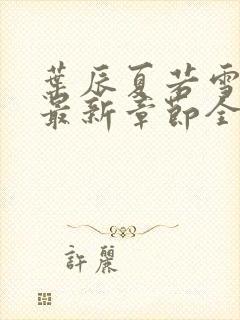 葉辰夏若雪
最新章節全
許麗